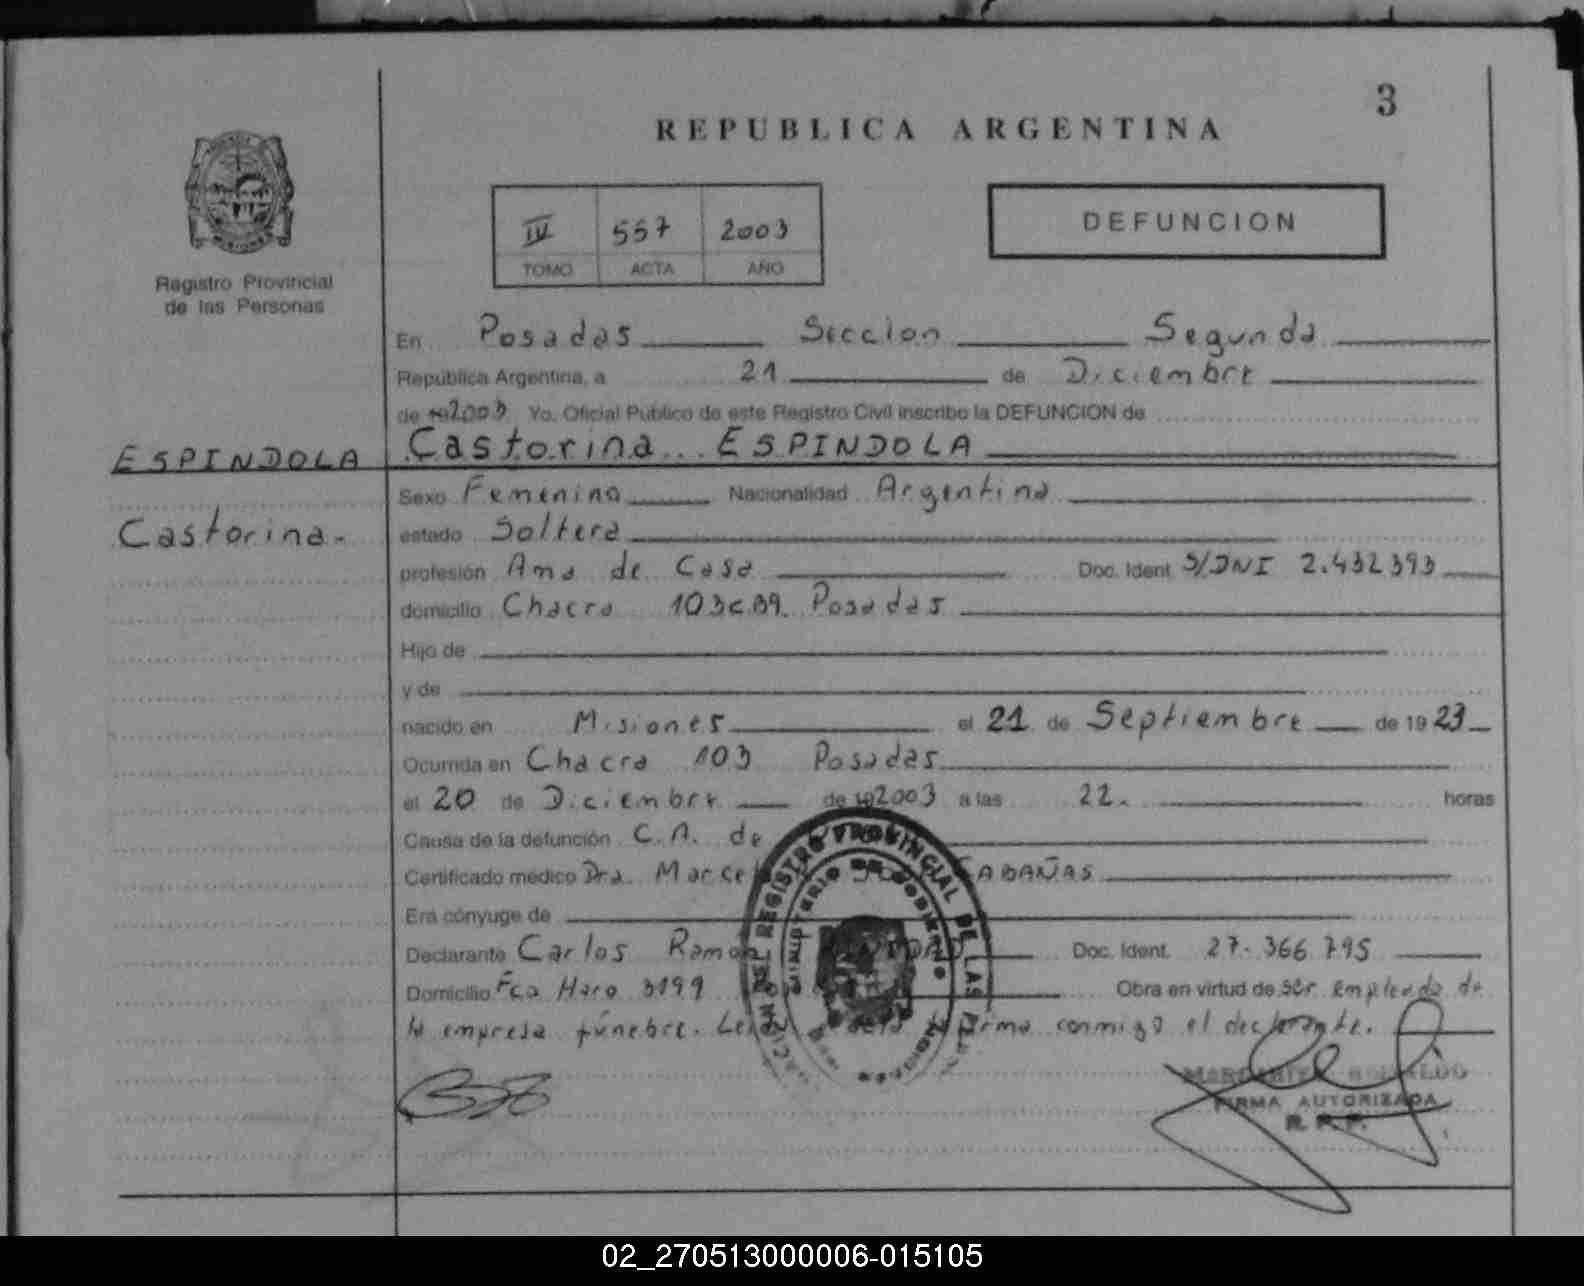 3
REPUBLICA ARGENTINA
MISIONES
Registro Provincial
de las Personas
IV 557 2003
TOMO ACTA AÑO
DEFUNCION
En Posadas Seccion Segunda
República Argentina, a 21 de Diciembre
de 192003 Yo. Oficial Público de este Registro Civil inscribo la DEFUNCION de
ESPINDOLA
Castorina.
Castorina ESPINDOLA
Sexo Femenino Nacionalidad Argentina
estado Soltera
profesión Ama de Casa Doc. Ident S/DNI 2.432393
domicilio Chacra 103c.39. Posadas
Hijo de
y de
nacido en Misiones el 21 de Septiembre de 1923
Ocurrida en Chacra 103 Posadas
el 20 de Diciembre de 192003 a las 22. horas
Causa de la defunción C.A. de
Certificado médico Dra. CABAÑAS
Era cónyuge de
Declarante Carlos Ramon Doc. Ident. 27.366.795
Domicilio Fco Haro 3199 Obra en virtud de ser empleado de
la empresa fúnebre. firma conmigo el declarante.
REGISTRO PROVINCIAL DE LAS
MINISTERIO DE GOBIERNO
FIRMA AUTORIZADA
R. P. P.
02_270513000006-015105